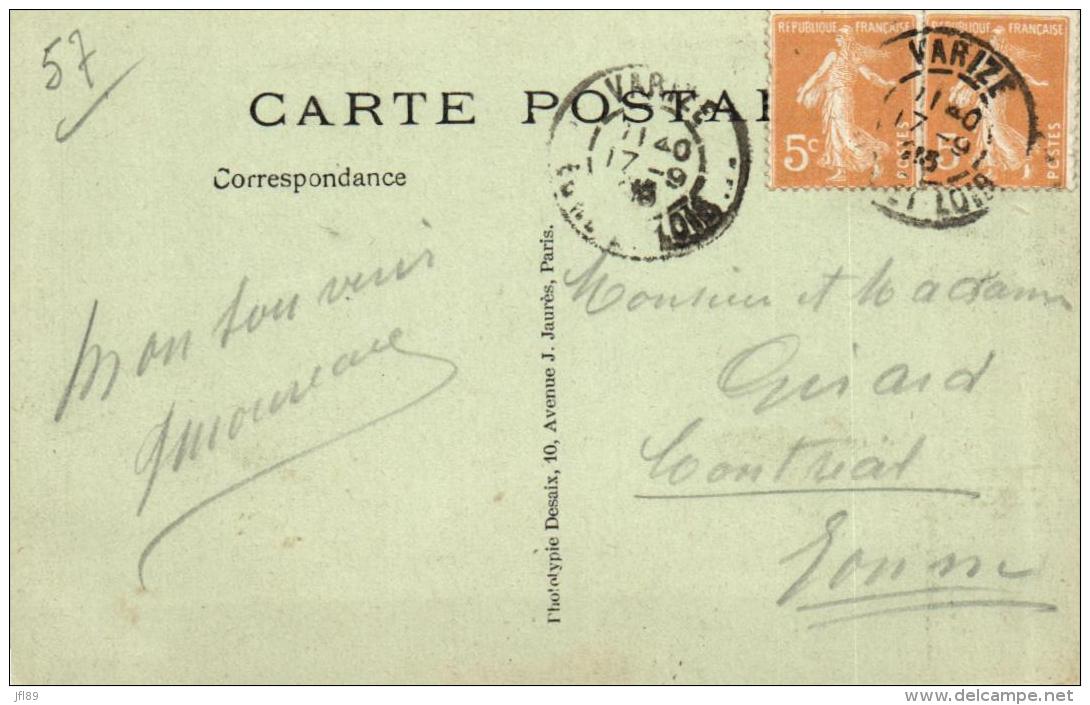 57
CARTE POSTAL
Correspondance
RÉPUBLIQUE FRANÇAISE
5c
POSTES
RÉPUBLIQUE FRANÇAISE
5c
POSTES
VARIZE
11 40
17 - 9
EURE ET LOIR
VARIZE
11 40
17 - 9
ET LOIR
Mon souvenir
Monsieur et Madame
Girard
Montréal
Yonne
Phototypie Desaix, 10, Avenue J. Jaurès, Paris.
jfl89
www.delcampe.net